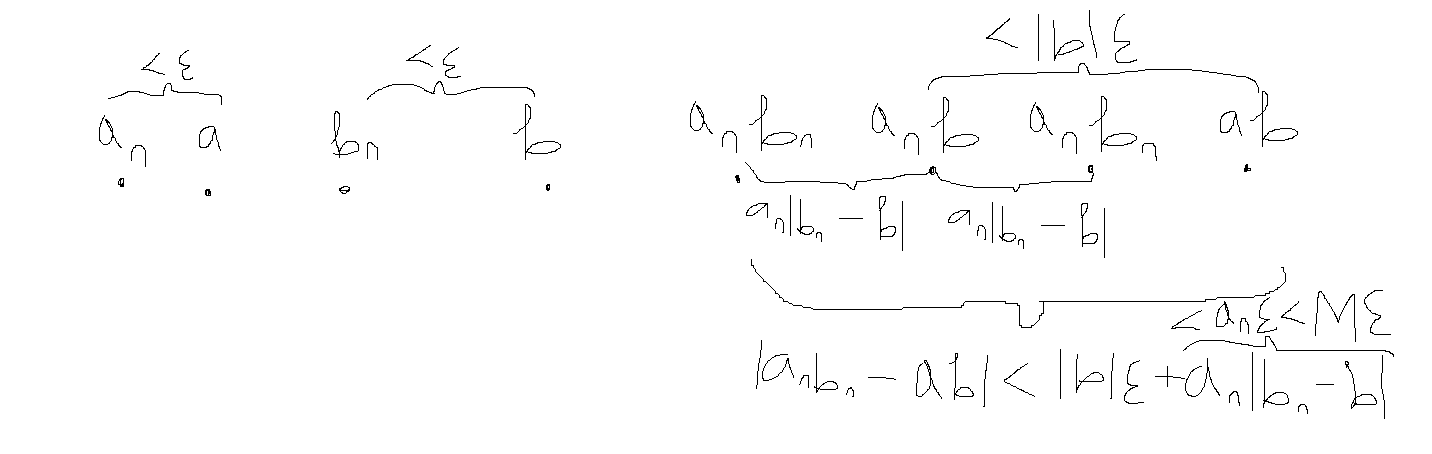 < ε < ε < |b| ε
aₙ a bₙ b aₙbₙ aₙb aₙbₙ ab
aₙ|bₙ - b| aₙ|bₙ - b|
< aₙε < Mε
|aₙbₙ - ab| < |b|ε + aₙ|bₙ - b|